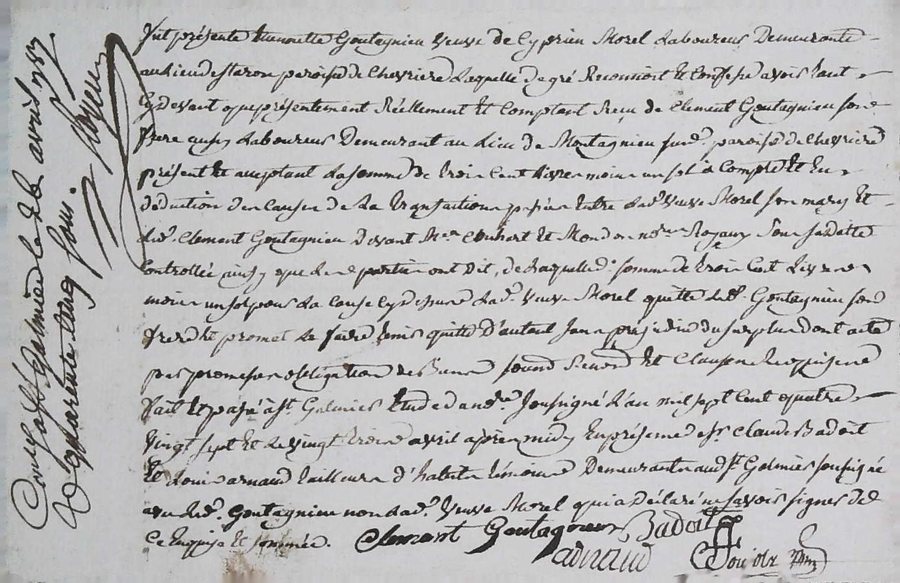 fut présente Gontagnieu veuve de Cyprien Morel Laboureur Demeurante
au lieu de paroisse de Chevriere Laquelle de gré Reconnoit Et Confesse avoir tant
Cydevant que présentement Réellement Et Comptant Recu de Clement Gontagnieu son
frere aussy Laboureur Demeurant au Lieu de Montagnieu susd. paroisse de Chevriere
présent Et aceptant La somme de trois Cent Livres moins un sol à Compte Et En
déduction des Causes de La transaction passée Entre Lad. veuve Morel son mary Et
Led. Clement Gontagnieu Devant Mes Et Mondon nores Royaux sous sa datte
Controllée ainsy que Les parties ont dit, de Laquelle d. somme de trois Cent Livres
moins un sol pour La Cause Cydessus Lad. veuve Morel quitte led. Gontagnieu son
frere Et promet Le faire tenir quitte D'autant sans préjudice du surplus dont acte
par promesses obligation de Biens soumis. Renon. Et Clauses Requises
fait Et passé à st. Galmier Etude du no. soussigné L'an mil sept Cent quatre
vingt sept Et le vingt trois avril après midy En présence de sr. Claude Badoit
Et Louis arnaud tailleur d'habits témoins Demeurants aud. st. Galmier soussigné
avec Led. Gontagnieu non Lad. veuve Morel qui a déclaré ne savoir signer de
Ce Enquise Et sommée. Clemant Gontagneux Badoit
arnaud
Con. à st. Galmier le 26 avril 1787
Reçu quarante cinq sous.